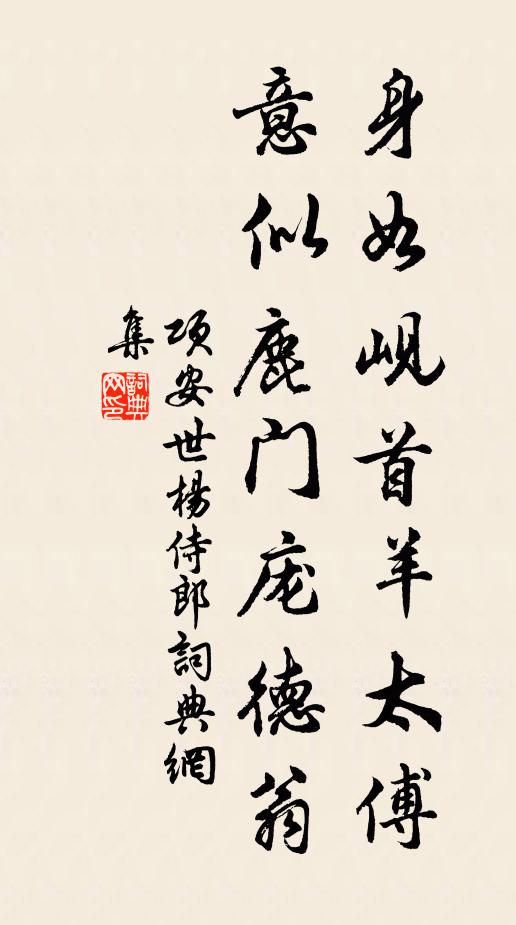 身如岘首羊太傅
意似鹿门庞德翁
项安世楊侍郎詞典網
集
詞典网印